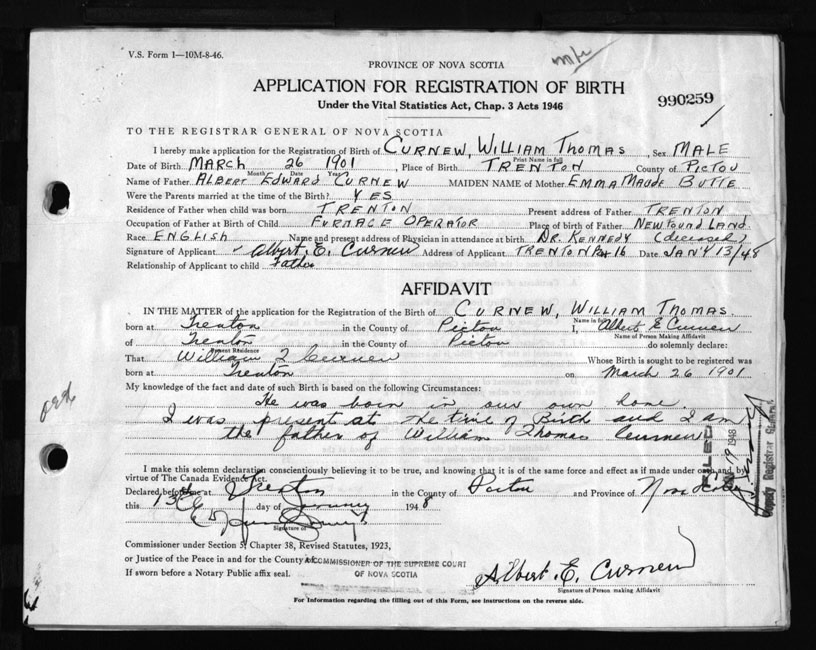 V.S. Form 1—10M-8-46.
PROVINCE OF NOVA SCOTIA
APPLICATION FOR REGISTRATION OF BIRTH
Under the Vital Statistics Act, Chap. 3 Acts 1946
990259
TO THE REGISTRAR GENERAL OF NOVA SCOTIA
I hereby make application for the Registration of Birth of CURNEW, WILLIAM THOMAS, Sex MALE
Print Name in full
Date of Birth MARCH 26 1901, Place of Birth TRENTON County of PICTOU
Month Date Year
Name of Father ALBERT EDWARD CURNEW MAIDEN NAME of Mother EMMA MAUDE BUTTE
Were the Parents married at the time of the Birth? YES
Residence of Father when child was born TRENTON Present address of Father TRENTON
Occupation of Father at Birth of Child FURNACE OPERATOR Place of birth of Father NEWFOUNDLAND
Race ENGLISH Name and present address of Physician in attendance at birth DR. KENNEDY (deceased)
Signature of Applicant Albert. E. Curnew Address of Applicant TRENTON Box 16 Date JANY 13/48
Relationship of Applicant to child Father
AFFIDAVIT
IN THE MATTER of the application for Registration of the Birth of CURNEW, WILLIAM THOMAS.
Name in full
born at Trenton in the County of Pictou I, Albert E Curnew
Name of Person Making Affidavit
of Trenton in the County of Pictou do solemnly declare:
Present Residence
That William T Curnew Whose Birth is sought to be registered was
born at Trenton on March 26 1901
My knowledge of the fact and date of such Birth is based on the following Circumstances:
He was born in our own home.
I was present at the time of Birth and I am
the father of William Thomas Curnew
FILED
19 1948
County Registrar
I make this solemn declaration conscientiously believing it to be true, and knowing that it is of the same force and effect as if made under oath and by
virtue of The Canada Evidence Act.
Declared before me at Trenton in the County of Pictou and Province of Nova Scotia
this 13th day of January 1948
Signature of
Commissioner under Section 5, Chapter 38, Revised Statutes, 1923,
or Justice of the Peace in and for the County of
A COMMISSIONER OF THE SUPREME COURT
OF NOVA SCOTIA
If sworn before a Notary Public affix seal.
Albert. E. Curnew
Signature of Person making Affidavit
For Information regarding the filling out of this Form, see instructions on the reverse side.